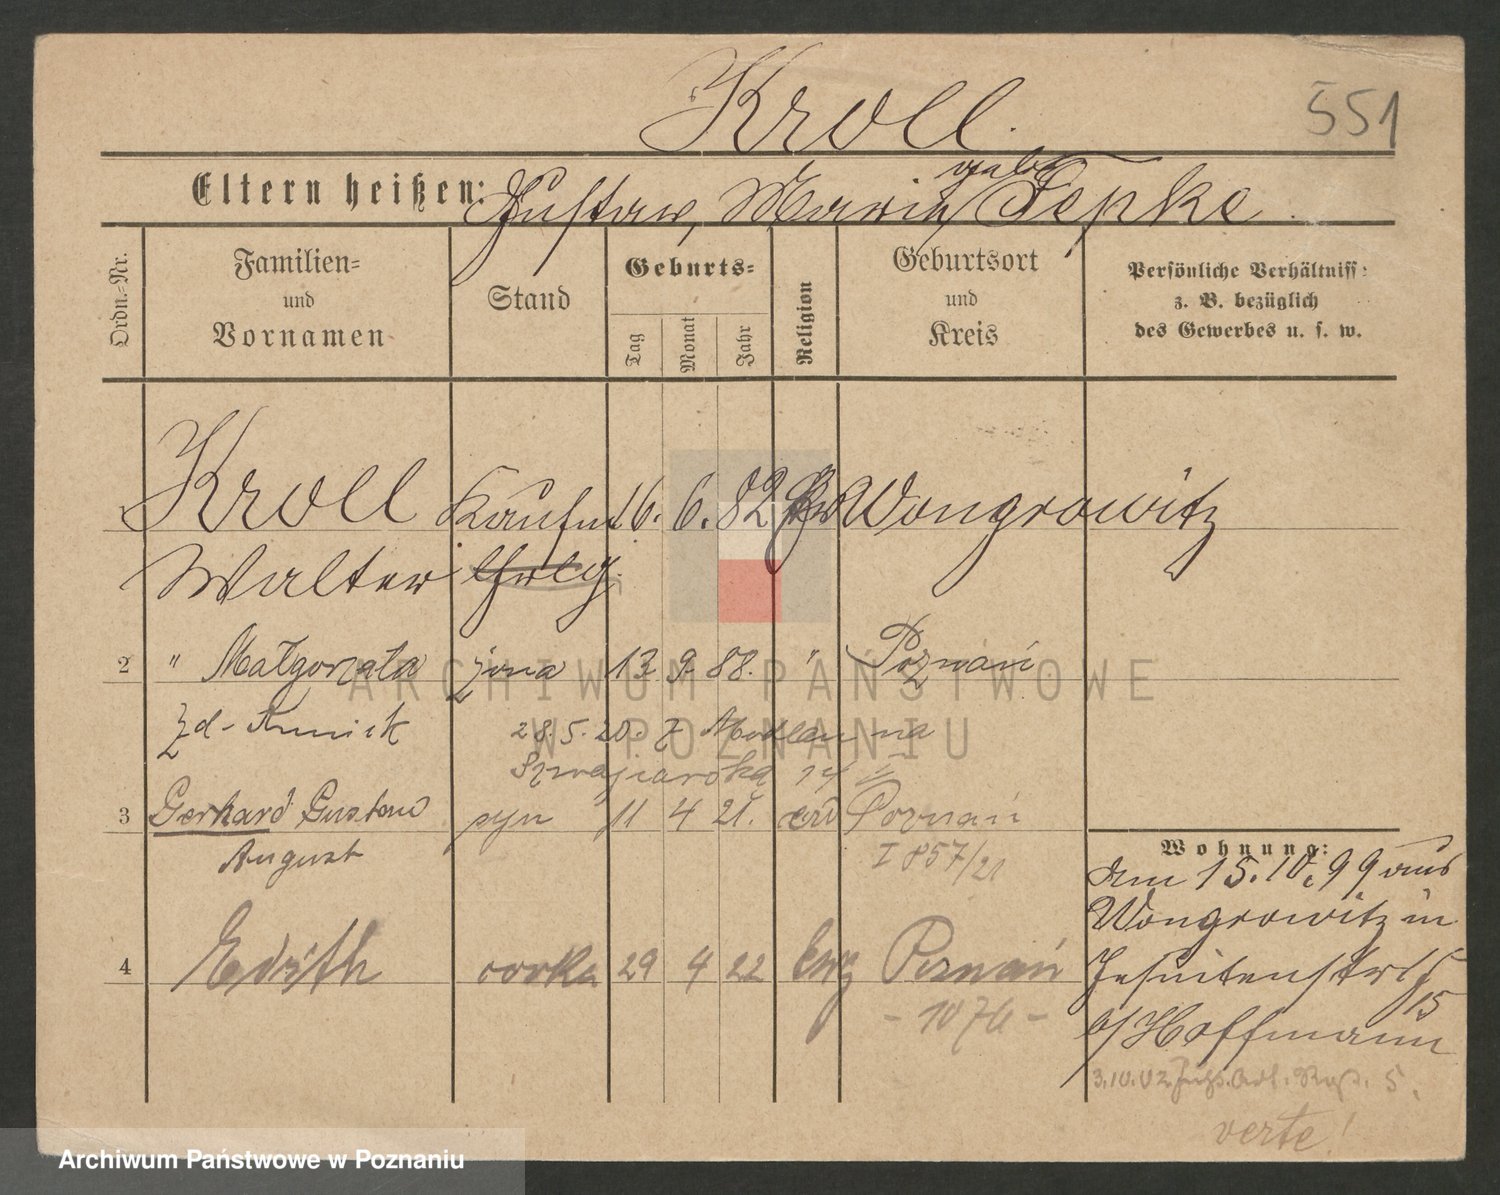 Kroll.
551
Eltern heißen: Gustav, Maria geb. Tepke
Ordn.-Nr.
Familien-
und
Vornamen
Stand
Geburts-
Tag
Monat
Jahr
Religion
Geburtsort
und
Kreis
Persönliche Verhältniss:
z. B. bezüglich
des Gewerbes u. s. w.
1 Kroll Kaufm. 16. 6. 82 Wongrowitz
Walter
2 " Małgorzata żona 13 9 88. " Poznań
28.5.20. z na
Szwajcarska 14
3 Gerhard Gustaw syn 11 4 21. Poznań
August I 857/21
4 Edith corka 29 4 22 ewg Poznań
- 1076 -
Wohnung:
Am 15.10.99 aus
Wongrowitz in
Jesuitenstr 15
15
b/ Hoffmann
3.10.02 5.
verte!
ARCHIWUM PAŃSTWOWE
W POZNANIU
Archiwum Państwowe w Poznaniu